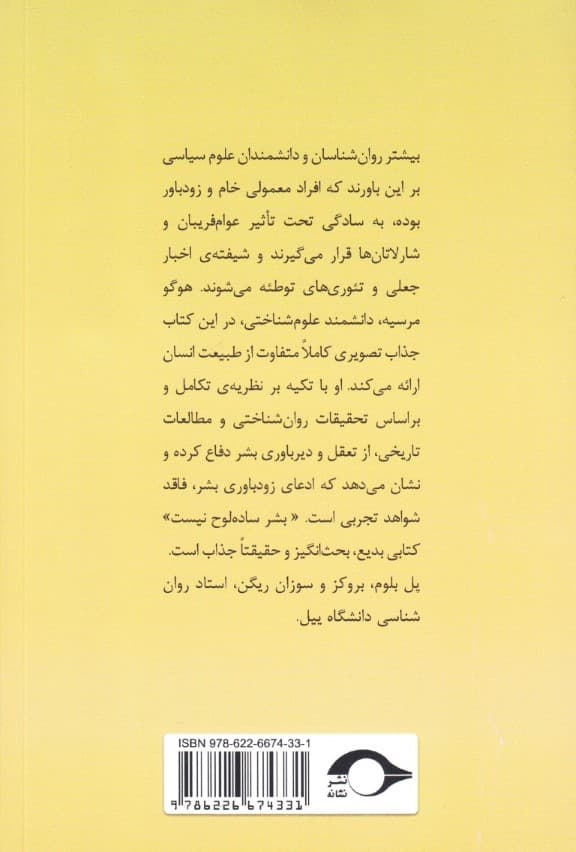 بیشتر روان‌شناسان و دانشمندان علوم سیاسی
بر این باورند که افراد معمولی خام و زودباور
بوده، به سادگی تحت تأثیر عوام‌فریبان و
شارلاتان‌ها قرار می‌گیرند و شیفته‌ی اخبار
جعلی و تئوری‌های توطئه می‌شوند. هوگو
مرسیه، دانشمند علوم‌شناختی، در این کتاب
جذاب تصویری کاملاً متفاوت از طبیعت انسان
ارائه می‌کند. او با تکیه بر نظریه‌ی تکامل و
براساس تحقیقات روان‌شناختی و مطالعات
تاریخی، از تعقل و دیرباوری بشر دفاع کرده و
نشان می‌دهد که ادعای زودباوری بشر، فاقد
شواهد تجربی است. « بشر ساده‌لوح نیست»
کتابی بدیع، بحث‌انگیز و حقیقتاً جذاب است.
پل بلوم، بروکز و سوزان ریگن، استاد روان
شناسی دانشگاه ییل.
ISBN 978-622-6674-33-1
9 786226 674331
نشر
نشانه